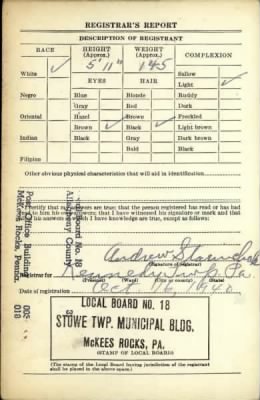 REGISTRAR'S REPORT
DESCRIPTION OF REGISTRANT
RACE HEIGHT (Approx.) WEIGHT (Approx.) COMPLEXION
White ✓ 5' 11" 145 Sallow
EYES HAIR Light ✓
Negro Blue Blonde Ruddy
Gray Red Dark
Oriental Hazel Brown Freckled
Brown ✓ Black ✓ Light brown
Indian Black Gray Dark brown
Bald Black
Filipino
Other obvious physical characteristics that will aid in identification
I certify that my answers are true; that the person registered has read or has had
read to him his own answers; that I have witnessed his signature or mark and that
all of his answers of which I have knowledge are true, except as follows:
Local Board No. 18
Allegheny County
Post Office Building
McKees Rocks, Penna.
Andrew
(Signature of registrar)
Registrar for Kennedy Twp. Pa.
Date of registration Oct 16, 1940
LOCAL BOARD NO. 18
STOWE TWP. MUNICIPAL BLDG.
McKEES ROCKS, PA.
(STAMP OF LOCAL BOARD)
(The stamp of the Local Board having jurisdiction of the registrant
shall be placed in the above space.)